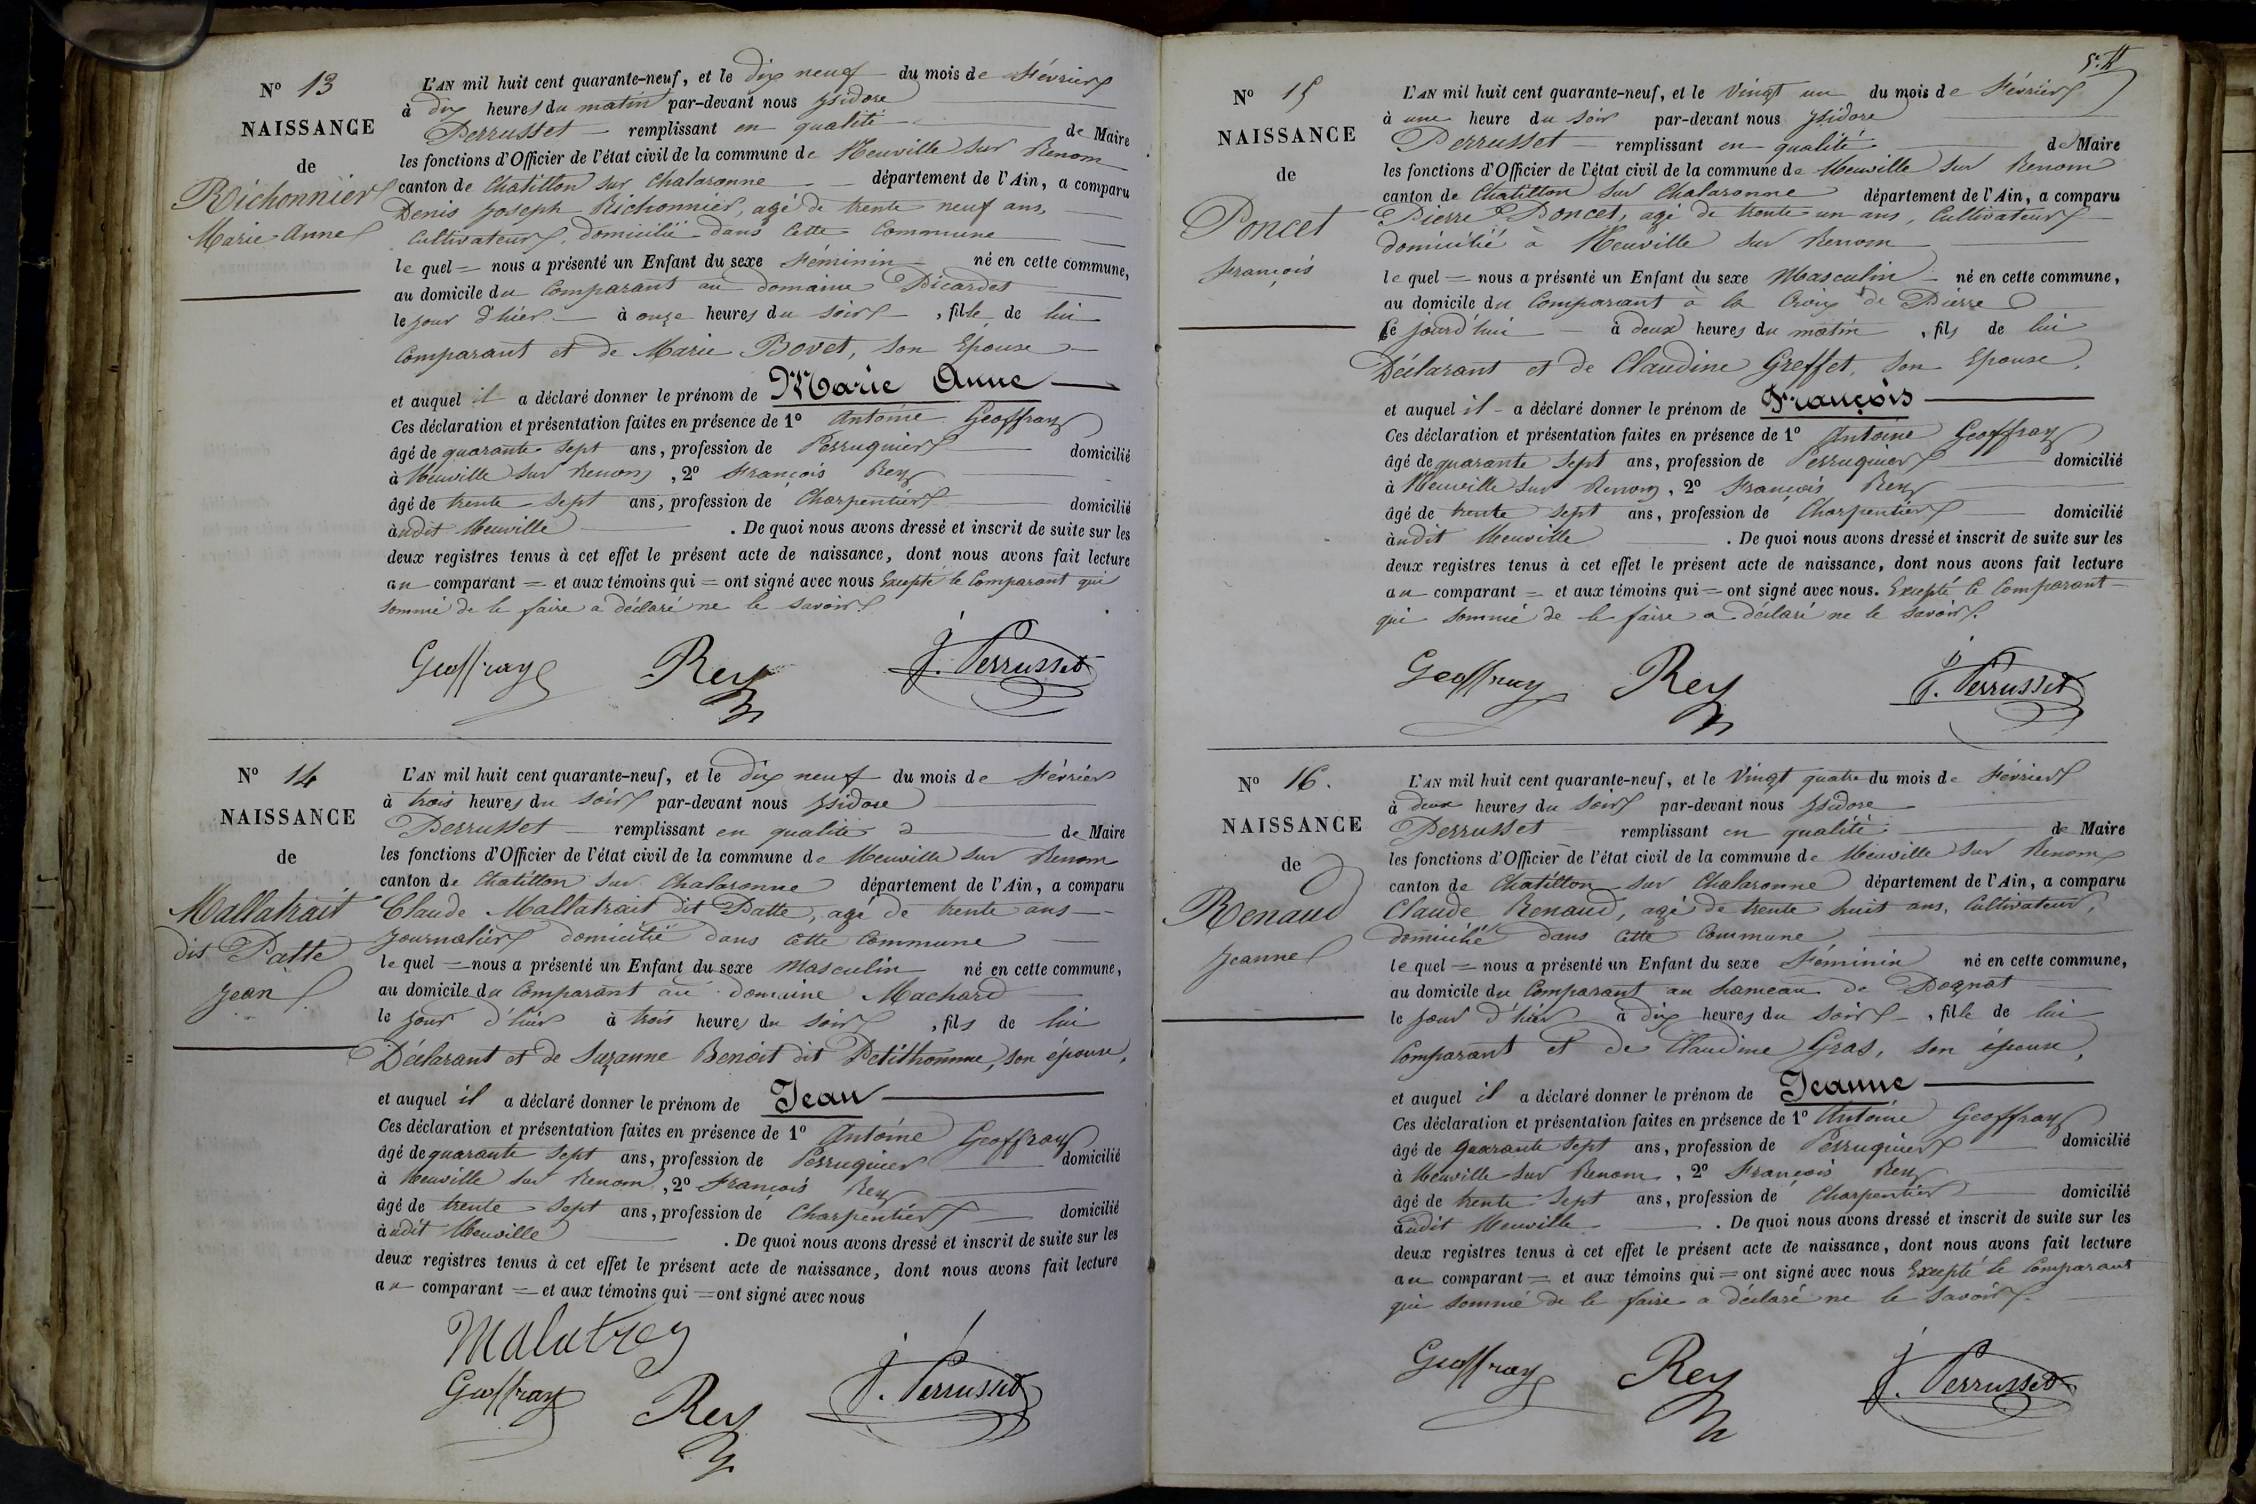 N° 13
NAISSANCE
de
Richonnier
Marie Anne
L'AN mil huit cent quarante-neuf, et le dix neuf du mois de Février
à dix heures du matin par-devant nous Ysidore
Perrusset remplissant en qualité de Maire
les fonctions d'Officier de l'état civil de la commune de Neuville sur Renom
canton de Chatillon sur Chalaronne département de l'Ain, a comparu
Denis Joseph Richonnier, agé de trente neuf ans,
Cultivateur, domicilié dans cette Commune
le quel = nous a présenté un Enfant du sexe Féminin né en cette commune,
au domicile du Comparant au domaine Picardet
le jour d'hier à onze heures du soir, fille de lui
Comparant et de Marie Bovet, son Epouse
et auquel il a déclaré donner le prénom de Marie Anne
Ces déclaration et présentation faites en présence de 1° Antoine Geoffray
âgé de quarante sept ans, profession de Perruquier domicilié
à Neuville sur Renom, 2° François Rey
âgé de trente sept ans, profession de Charpentier domicilié
audit Neuville. De quoi nous avons dressé et inscrit de suite sur les
deux registres tenus à cet effet le présent acte de naissance, dont nous avons fait lecture
au comparant = et aux témoins qui = ont signé avec nous Excepté le Comparant qui
sommé de le faire a déclaré ne le savoir.
Geoffray Rey J. Perrusset
N° 14
NAISSANCE
de
Mallatrait
dit Patte
Jean
L'AN mil huit cent quarante-neuf, et le dix neuf du mois de Février
à trois heures du soir par-devant nous Ysidore
Perrusset remplissant en qualité de Maire
les fonctions d'Officier de l'état civil de la commune de Neuville sur Renom
canton de Chatillon sur Chalaronne département de l'Ain, a comparu
Claude Mallatrait dit Patte, agé de trente ans
Journalier domicilié dans cette Commune
le quel = nous a présenté un Enfant du sexe Masculin né en cette commune,
au domicile du Comparant au domaine Machard
le jour d'hier à trois heures du soir, fils de lui
Déclarant et de Suzanne Benoit dit Petithomme, son épouse,
et auquel il a déclaré donner le prénom de Jean
Ces déclaration et présentation faites en présence de 1° Antoine Geoffray
âgé de quarante sept ans, profession de Perruquier domicilié
à Neuville sur Renom, 2° François Rey
âgé de trente sept ans, profession de Charpentier domicilié
audit Neuville. De quoi nous avons dressé et inscrit de suite sur les
deux registres tenus à cet effet le présent acte de naissance, dont nous avons fait lecture
au comparant = et aux témoins qui = ont signé avec nous
Malatrey
Geoffray Rey J. Perrusset
N° 15
NAISSANCE
de
Poncet
François
L'AN mil huit cent quarante-neuf, et le Vingt un du mois de Février
à une heure du soir par-devant nous Ysidore
Perrusset remplissant en qualité de Maire
les fonctions d'Officier de l'état civil de la commune de Neuville sur Renom
canton de Chatillon sur Chalaronne département de l'Ain, a comparu
Pierre Poncet, agé de trente un ans, Cultivateur
domicilié à Neuville sur Renom
le quel = nous a présenté un Enfant du sexe Masculin né en cette commune,
au domicile du Comparant à la Croix de Pierre
ce jourd'hui à deux heures du matin, fils de lui
Déclarant et de Claudine Greffet, son Epouse,
et auquel il a déclaré donner le prénom de François
Ces déclaration et présentation faites en présence de 1° Antoine Geoffray
âgé de quarante sept ans, profession de Perruquier domicilié
à Neuville sur Renom, 2° François Rey
âgé de trente sept ans, profession de Charpentier domicilié
audit Neuville. De quoi nous avons dressé et inscrit de suite sur les
deux registres tenus à cet effet le présent acte de naissance, dont nous avons fait lecture
au comparant = et aux témoins qui = ont signé avec nous. Excepté le Comparant
qui sommé de le faire a déclaré ne le savoir.
Geoffray Rey J. Perrusset
N° 16.
NAISSANCE
de
Renaud
Jeanne
L'AN mil huit cent quarante-neuf, et le Vingt quatre du mois de Février
à deux heures du soir par-devant nous Ysidore
Perrusset remplissant en qualité de Maire
les fonctions d'Officier de l'état civil de la commune de Neuville sur Renom
canton de Chatillon sur Chalaronne département de l'Ain, a comparu
Claude Renaud, agé de trente huit ans, Cultivateur,
domicilié dans cette Commune
le quel = nous a présenté un Enfant du sexe Féminin né en cette commune,
au domicile du Comparant au hameau de Pognat
le jour d'hier à dix heures du soir, fille de lui
Comparant et de Claudine Gras, son épouse,
et auquel il a déclaré donner le prénom de Jeanne
Ces déclaration et présentation faites en présence de 1° Antoine Geoffray
âgé de quarante sept ans, profession de Perruquier domicilié
à Neuville sur Renom, 2° François Rey
âgé de trente sept ans, profession de Charpentier domicilié
audit Neuville. De quoi nous avons dressé et inscrit de suite sur les
deux registres tenus à cet effet le présent acte de naissance, dont nous avons fait lecture
au comparant = et aux témoins qui = ont signé avec nous Excepté le Comparant
qui sommé de le faire a déclaré ne le savoir.
Geoffray Rey J. Perrusset